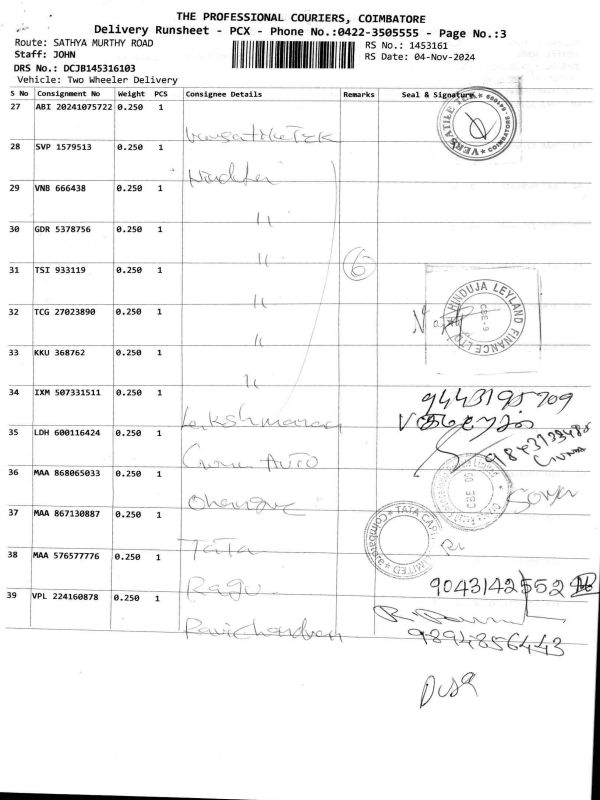 THE PROFESSIONAL COURIERS, COIMBATORE
Delivery Runsheet - PCX - Phone No.:0422-3505555 - Page No.:3
Route: SATHYA MURTHY ROAD
RS No.: 1453161
Staff: JOHN
RS Date: 04-Nov-2024
DRS No.: DCJB145316103
Vehicle: Two Wheeler Delivery
S No Consignment No Weight PCS Consignee Details Remarks Seal & Signature
27 ABI 20241075722 0.250 1
VERSATILE TEK COIMBATORE
28 SVP 1579513 0.250 1
29 VNB 666438 0.250 1
"
30 GDR 5378756 0.250 1
"
6
31 TSI 933119 0.250 1
"
HINDUJA LEYLAND FINANCE LTD CBE-9
32 TCG 27023890 0.250 1
"
33 KKU 368762 0.250 1
"
34 IXM 507331511 0.250 1
Lakshmanan
35 LDH 600116424 0.250 1
AUTO
36 MAA 868065033 0.250 1
CBE
37 MAA 867130887 0.250 1
Tata
TATA CAPITAL LIMITED
38 MAA 576577776 0.250 1
Ragu
9043142552
39 VPL 224160878 0.250 1
Ravichandran
9894856443